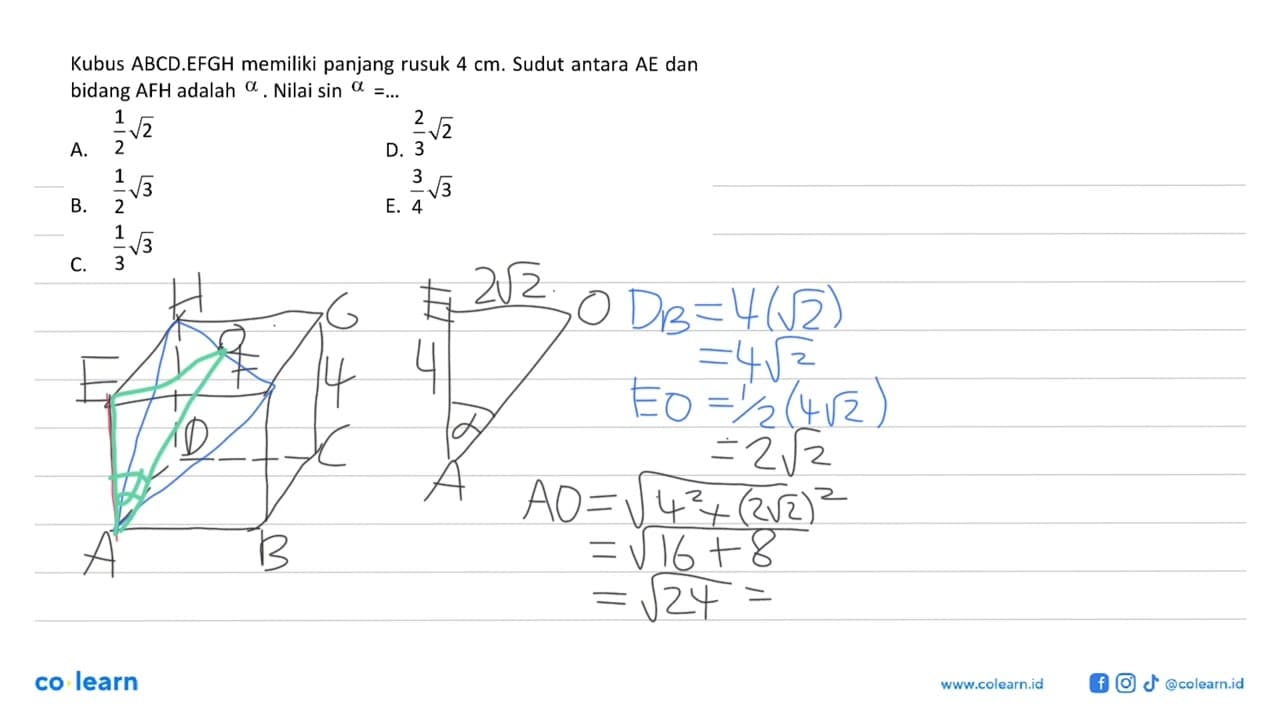 Kubus ABCD.EFGH memiliki panjang rusuk 4 cm. Sudut antara AE dan
bidang AFH adalah α . Nilai sin α =...
A. 1/2 √2
D. 2/3 √2
B. 1/2 √3
E. 3/4 √3
C. 1/3 √3
H
G
E
O
F
4
D
C
A
B
E 2√2 O
4
α
A
DB = 4(√2)
= 4√2
EO = 1/2 (4√2)
= 2√2
AO = √4² + (2√2)²
= √16 + 8
= √24 =
co learn
www.colearn.id
@colearn.id